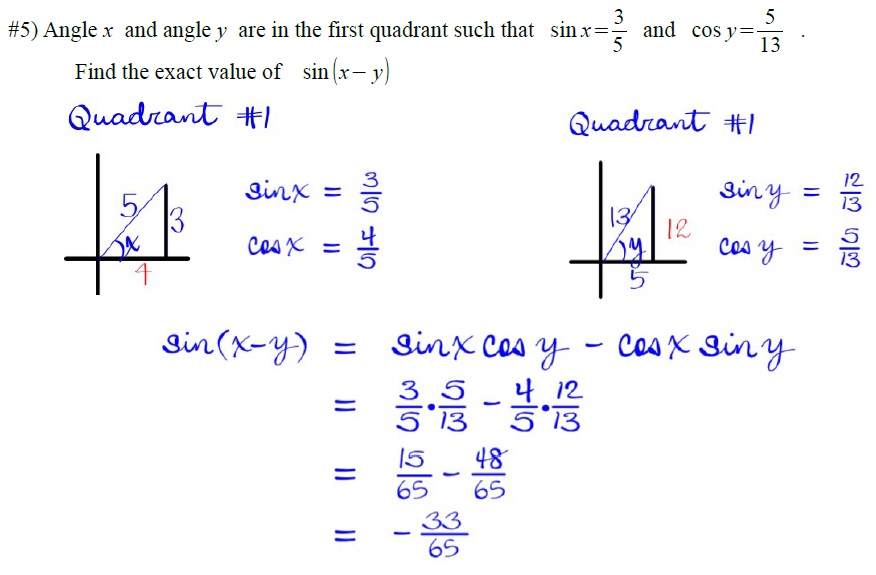 #5) Angle x and angle y are in the first quadrant such that sin x = 3/5 and cos y = 5/13 .
Find the exact value of sin(x − y)
Quadrant #1
5
3
x
4
sin x = 3/5
cos x = 4/5
Quadrant #1
13
12
y
5
sin y = 12/13
cos y = 5/13
sin(x−y) = sin x cos y − cos x sin y
= 3/5 • 5/13 − 4/5 • 12/13
= 15/65 − 48/65
= − 33/65